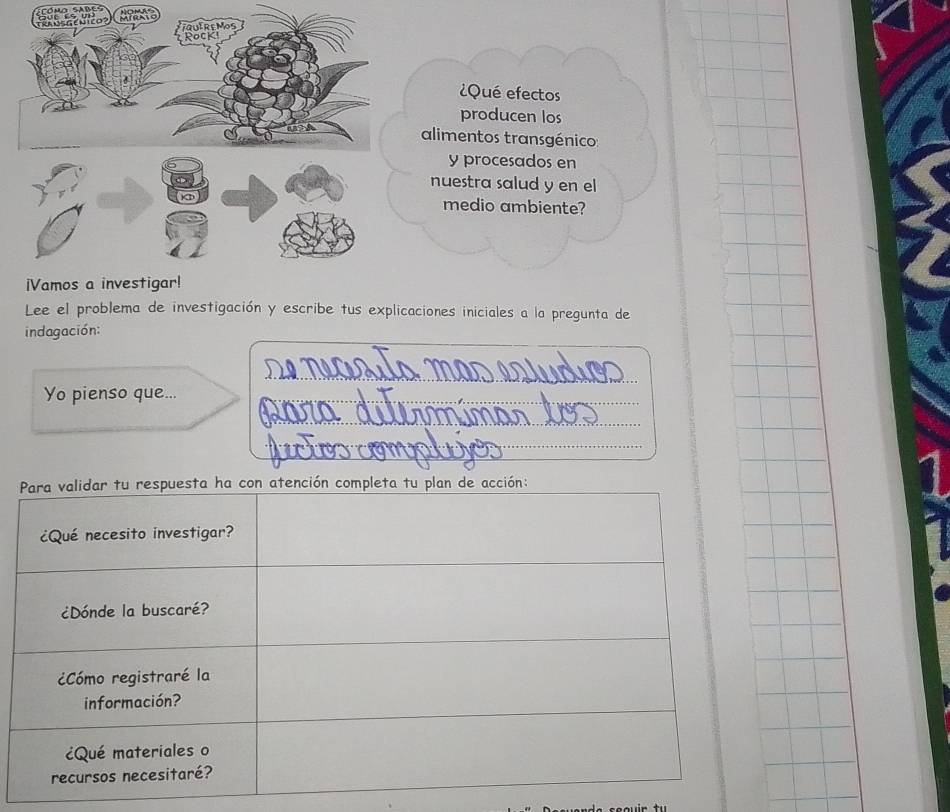 ¿CÓMO SABES
QUE ES UN
TRANSGÉNICO?
NOMAS
MIRALO
¡QUIREMOS
ROCK!
¿Qué efectos
producen los
alimentos transgénico
y procesados en
nuestra salud y en el
medio ambiente?
KD
¡Vamos a investigar!
Lee el problema de investigación y escribe tus explicaciones iniciales a la pregunta de
indagación:
Yo pienso que...
se necesita mas estudios
para determinar los
complejos
Para validar tu respuesta ha con atención completa tu plan de acción:
¿Qué necesito investigar?
¿Dónde la buscaré?
¿Cómo registraré la
información?
¿Qué materiales o
recursos necesitaré?
seguir tu